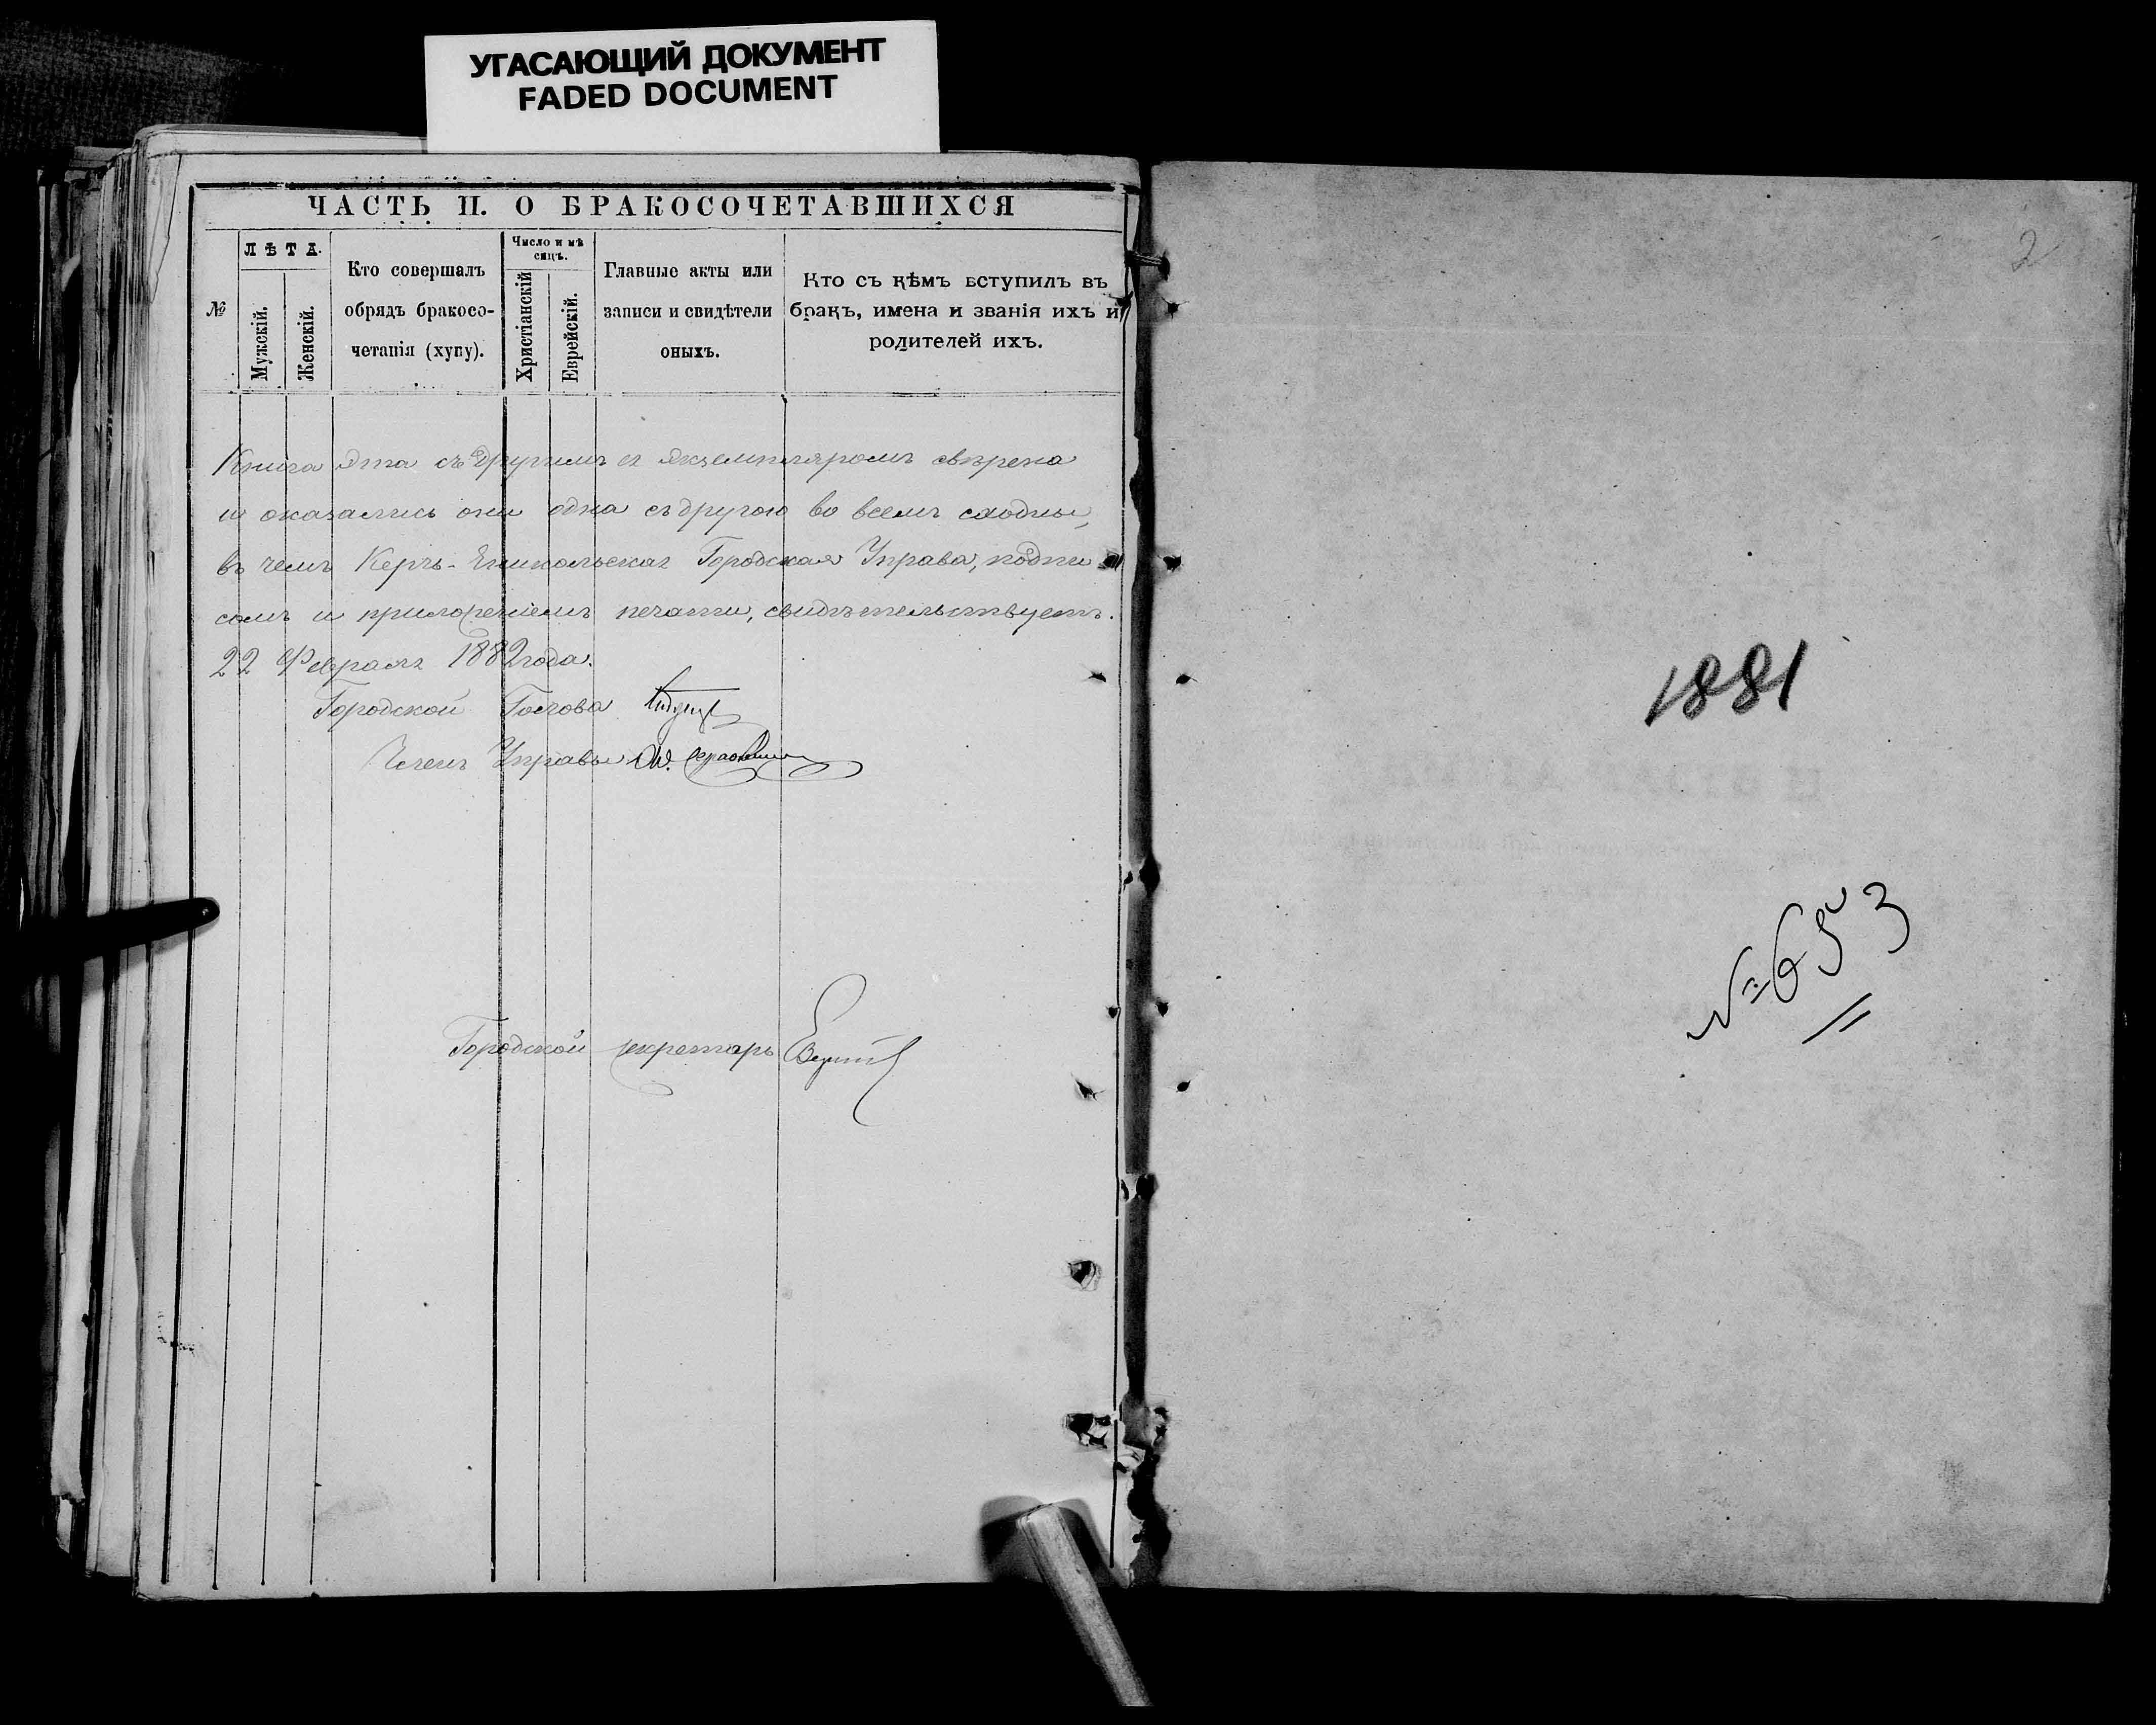 УГАСАЮЩИЙ ДОКУМЕНТ
FADED DOCUMENT
ЧАСТЬ II. О БРАКОСОЧЕТАВШИХСЯ
№
ЛѢТА.
Мужскій.
Женскій.
Кто совершалъ
обрядъ бракосо-
четанія (хупу).
Число и мѣ
сяцъ.
Христіанскій
Еврейскій.
Главные акты или
записи и свидѣтели
оныхъ.
Кто съ кѣмъ вступилъ въ
бракъ, имена и званія ихъ и
родителей ихъ.
Книга эта съ другимъ ея экземпляромъ свѣрена
и оказались они одна съ другою во всемъ сходны,
въ чемъ Керчь-Еникольская Городская Управа, подпи
сомъ и приложеніемъ печати, свидѣтельствуетъ.
22 Февраля 1882 года.
Городской Голова
Членъ Управы
Городской секретарь
2
1881
№ 653